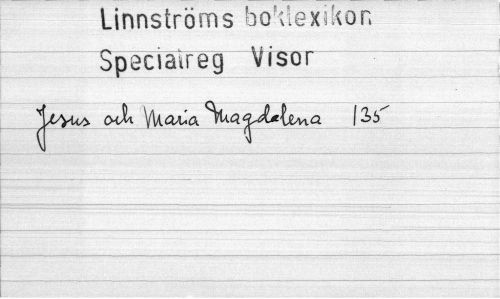 Linnströms boklexikon
Specialreg Visor
Jesus och Maria Magdalena 135